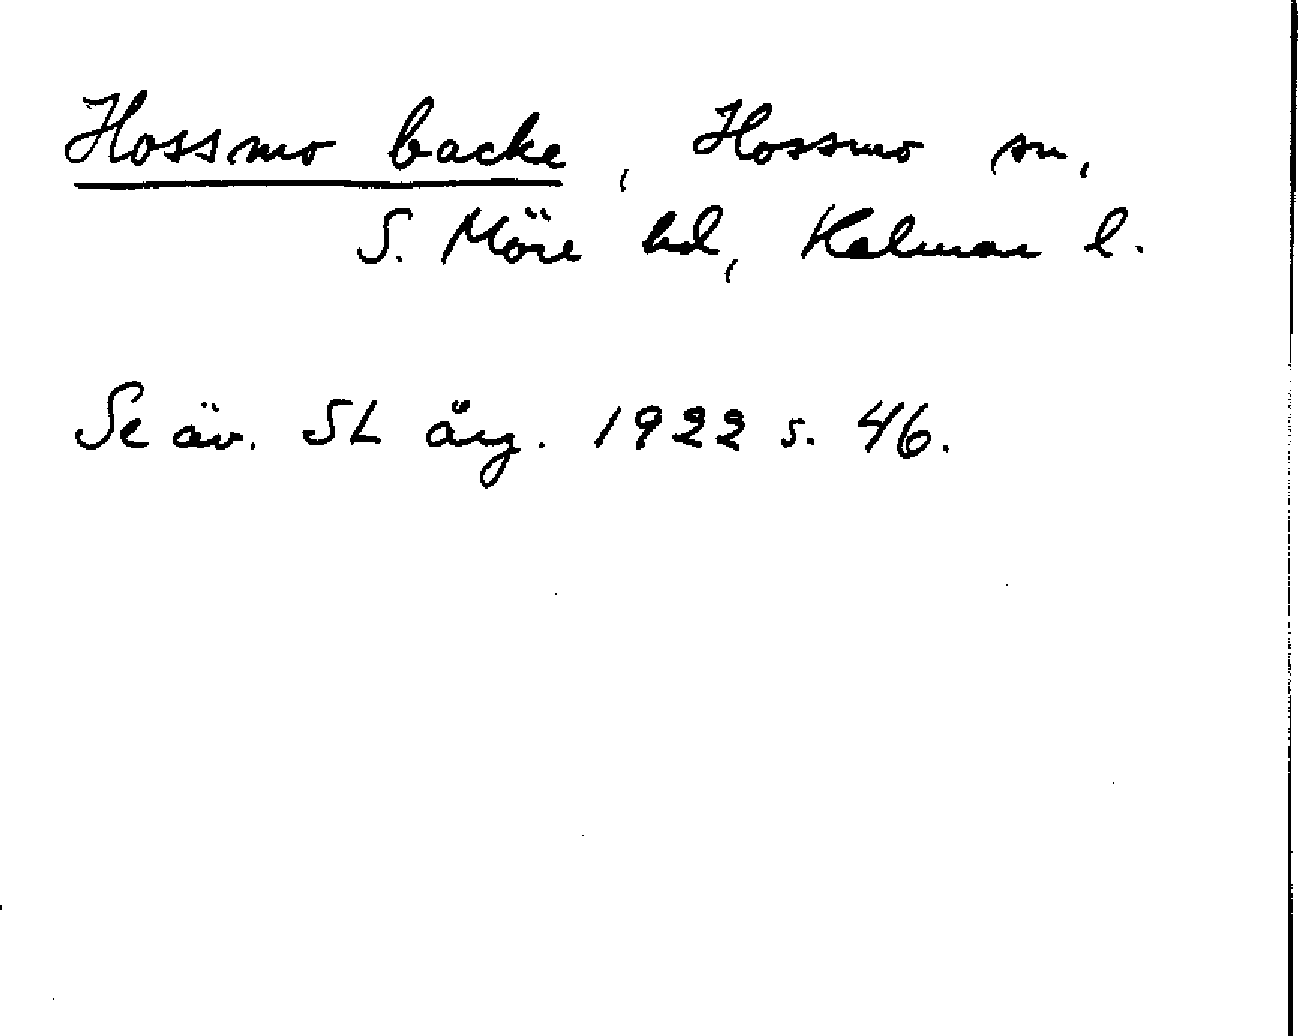 Hossmo backe, Hossmo sn,
S. Möre hd, Kalmar l.
Se äv. SL årg. 1922 s. 46.